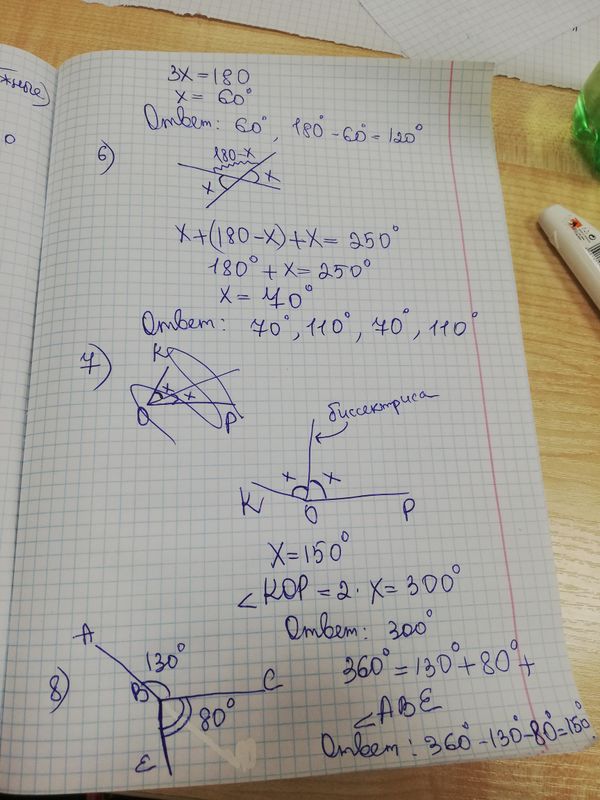 жные)
0
3x = 180
x = 60°
Ответ: 60°, 180° - 60° = 120°
6)
180-x
x
x
x + (180 - x) + x = 250°
180° + x = 250°
x = 70°
Ответ: 70°, 110°, 70°, 110°
7)
K
x
x
O
P
биссектриса
x
x
K
O
P
x = 150°
∠KOP = 2 · x = 300°
Ответ: 300°
8)
A
130°
B
C
80°
E
360° = 130° + 80° +
∠ABE
Ответ: 360° - 130° - 80° = 150°.